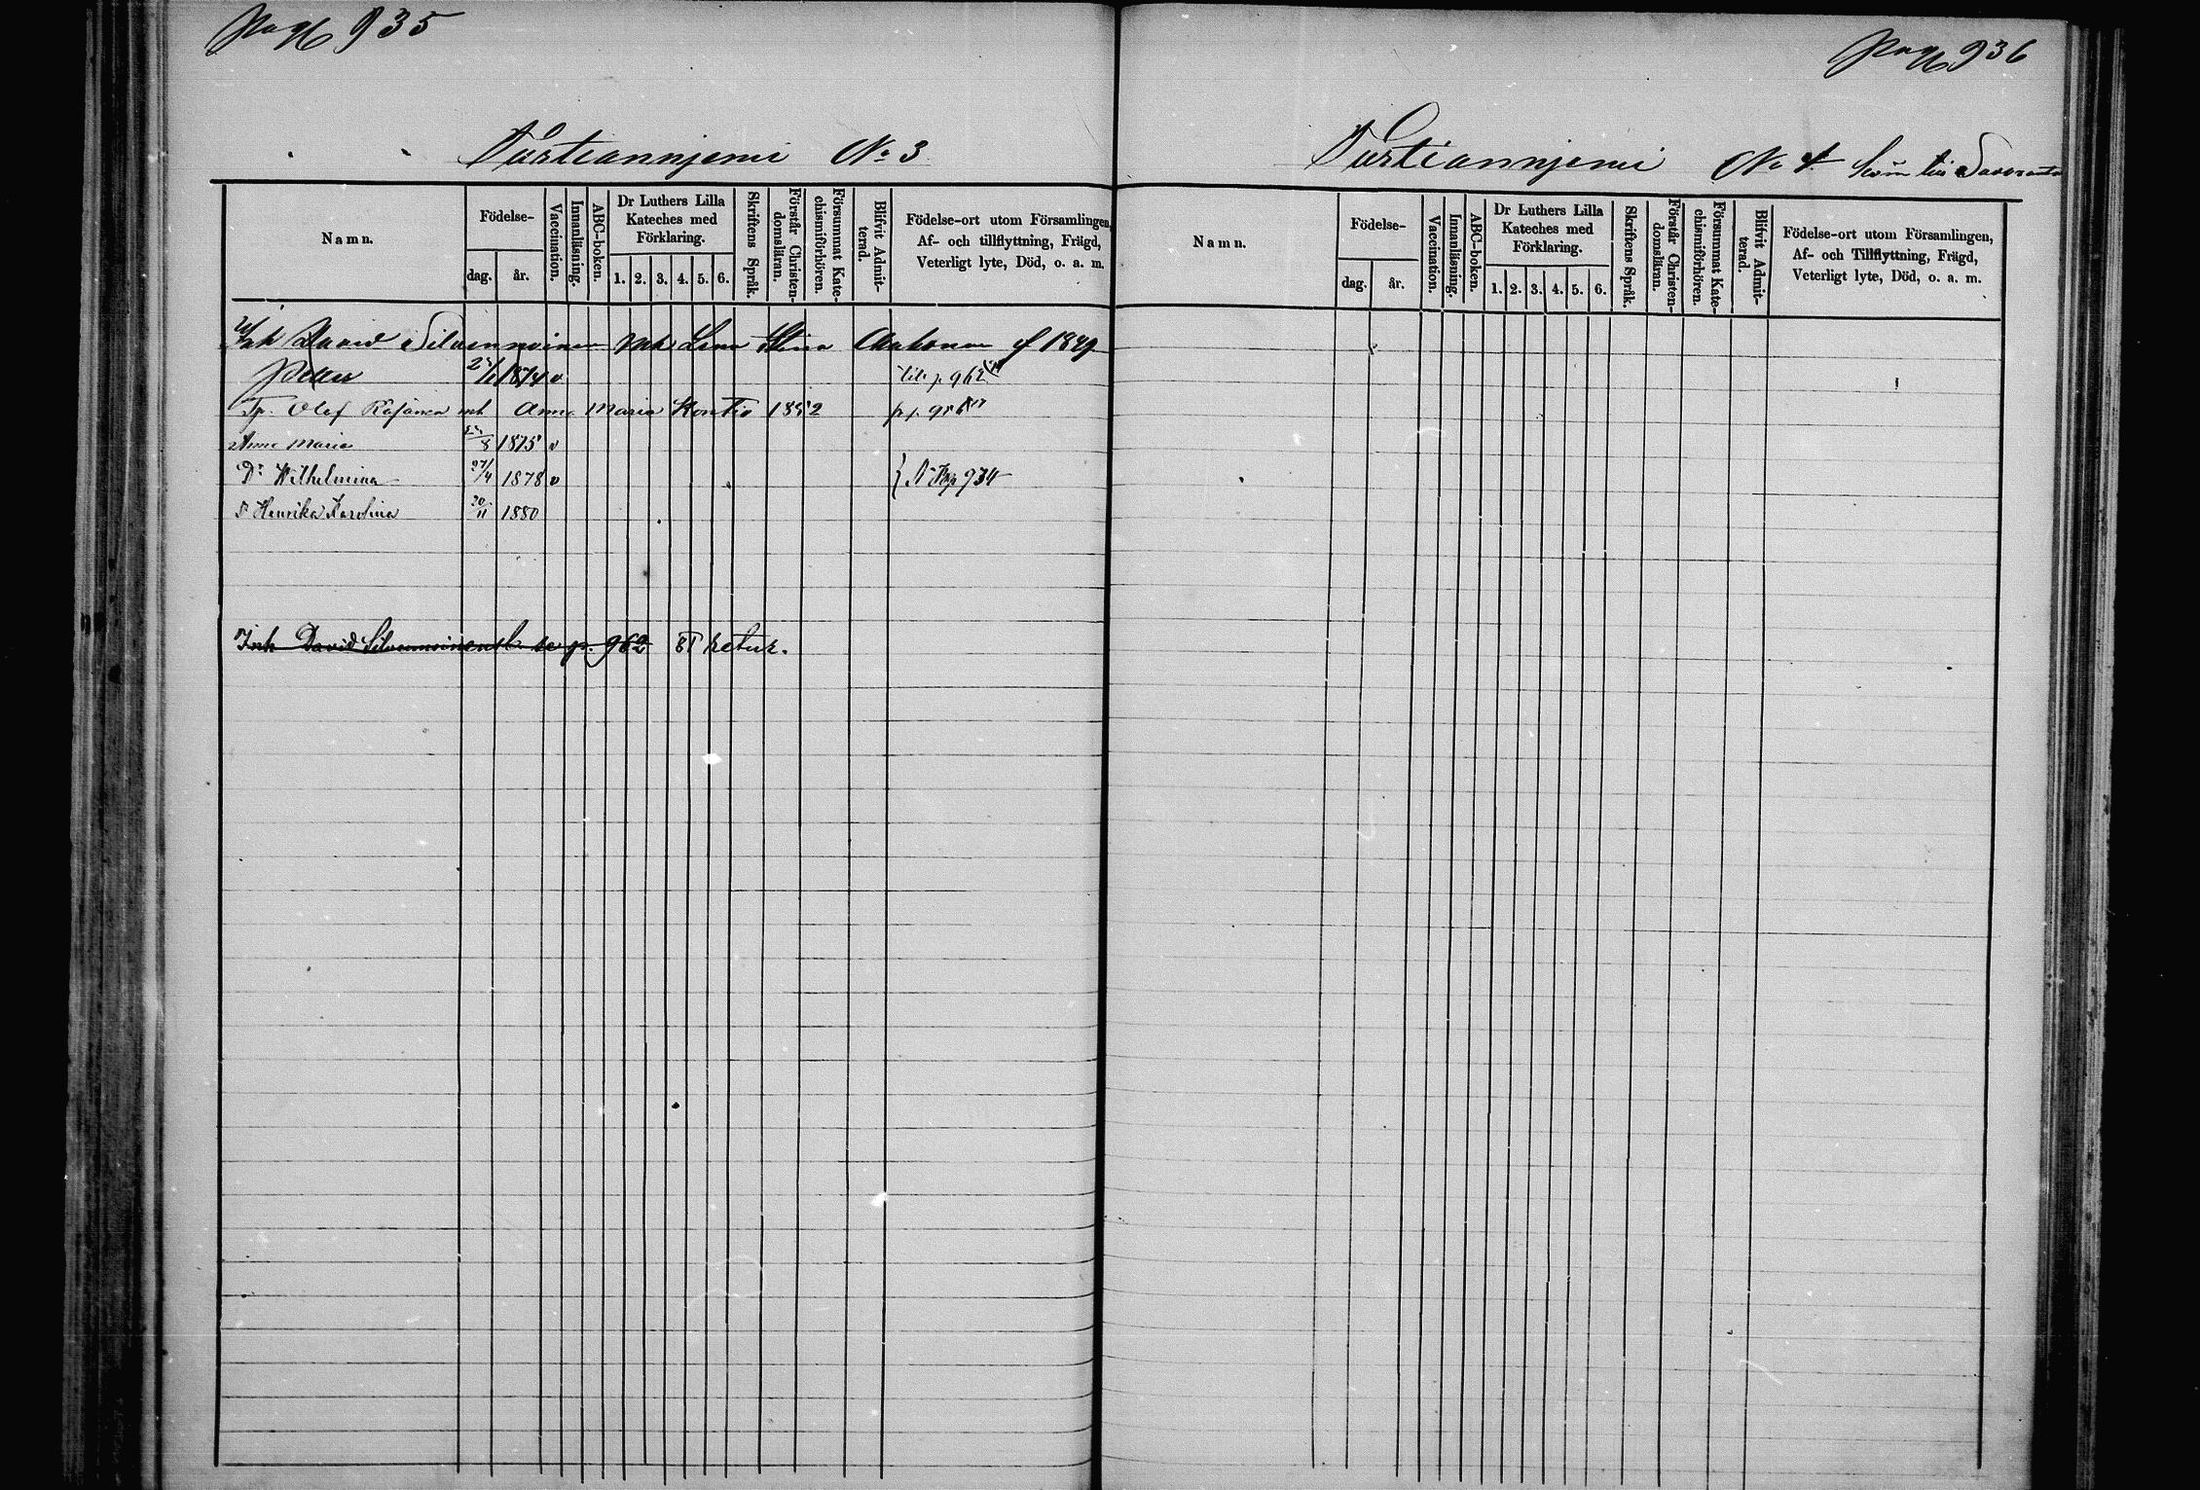 pag 935
Tustiannjemi No 3
Namn.
Födelse-
dag.
år.
Vaccination.
Innanläsning.
ABC-boken.
Dr Luthers Lilla
Kateches med
Förklaring.
1. 2. 3. 4. 5. 6.
Skriftens Språk.
Förstår Christen-
domsläran.
Försummat Kate-
chismiförhören.
Blifvit Admit-
terad.
Födelse-ort utom Församlingen,
Af- och tillflyttning, Frägd,
Veterligt lyte, Död, o. a. m.
Inh David Silvennoinen mh Lena Stina f 1849
Petter 1874 v p 962
Olof Räsänen mh Anna Maria Kontio 1852
Anna Maria 1875 v
Dr Wilhelmina 27/4 1878 v 934
Dr Henrika Karolina 20/11 1880
Inh David Silvennoinen se p. 962 81 retur.
pag 936
Tustiannjemi No 4
Namn.
Födelse-
dag.
år.
Vaccination.
Innanläsning.
ABC-boken.
Dr Luthers Lilla
Kateches med
Förklaring.
1. 2. 3. 4. 5. 6.
Skriftens Språk.
Förstår Christen-
domsläran.
Försummat Kate-
chismiförhören.
Blifvit Admit-
terad.
Födelse-ort utom Församlingen,
Af- och Tillflyttning, Frägd,
Veterligt lyte, Död, o. a. m.